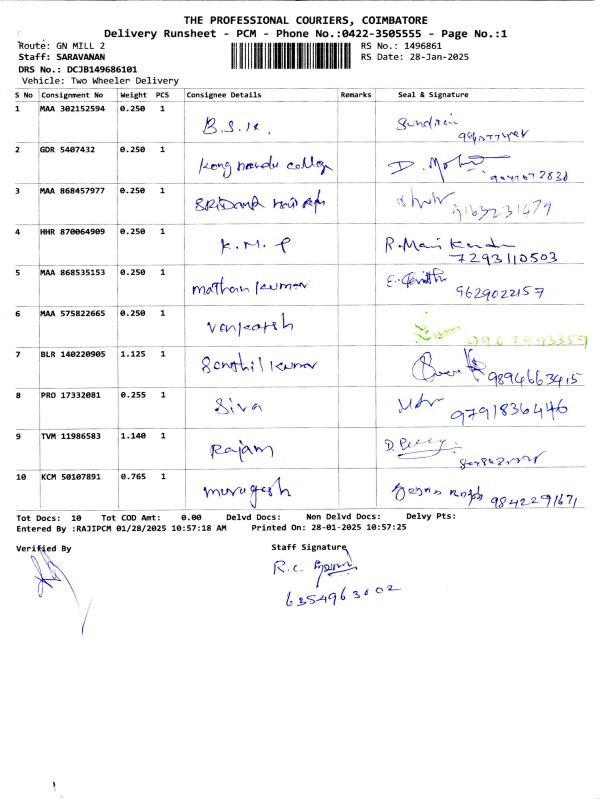 THE PROFESSIONAL COURIERS, COIMBATORE
Delivery Runsheet - PCM - Phone No.:0422-3505555 - Page No.:1
Route: GN MILL 2 RS No.: 1496861
Staff: SARAVANAN RS Date: 28-Jan-2025
DRS No.: DCJB149686101
Vehicle: Two Wheeler Delivery
S No Consignment No Weight PCS Consignee Details Remarks Seal & Signature
1 MAA 302152594 0.250 1 B.S.K.
2 GDR 5407432 0.250 1 Kongunadu college D.
3 MAA 868457977 0.250 1 9163231479
4 HHR 870064909 0.250 1 K.M.P R.Mani
7293110503
5 MAA 868535153 0.250 1 mathan kumar E.
9629022157
6 MAA 575822665 0.250 1 Venkatesh
9962993359
7 BLR 140220905 1.125 1 Senthil kumar 9894663415
8 PRO 17332081 0.255 1 Siva
9791836446
9 TVM 11986583 1.140 1 Rajam D.
10 KCM 50107891 0.765 1 murugesh 9842291671
Tot Docs: 10 Tot COD Amt: 0.00 Delvd Docs: Non Delvd Docs: Delvy Pts:
Entered By :RAJIPCM 01/28/2025 10:57:18 AM Printed On: 28-01-2025 10:57:25
Verified By Staff Signature
R.C.
6354963002